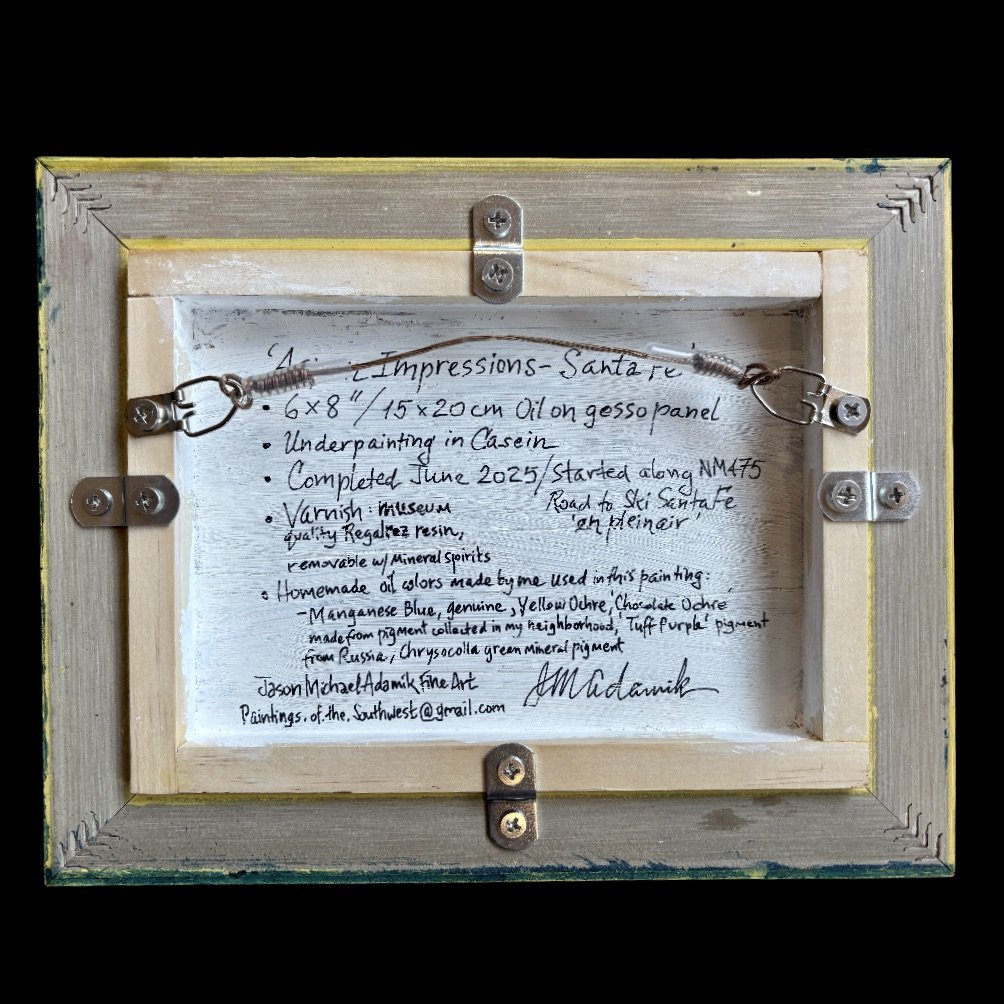 Impressions - Santa Fe'
• 6×8"/15×20cm Oil on gesso panel
• Underpainting in Casein
• Completed June 2025/Started along NM475
Road to Ski Santa Fe
'en plein air'
• Varnish: museum
quality Regalrez resin,
removable w/ Mineral spirits
• Homemade oil colors made by me used in this painting:
- Manganese Blue, genuine, Yellow Ochre, 'Chocolate Ochre'
made from pigment collected in my neighborhood, 'Tuff Purple' pigment
from Russia, Chrysocolla green mineral pigment
Jason Michael Adamik Fine Art
JMAdamik
Paintings.of.the.Southwest@gmail.com